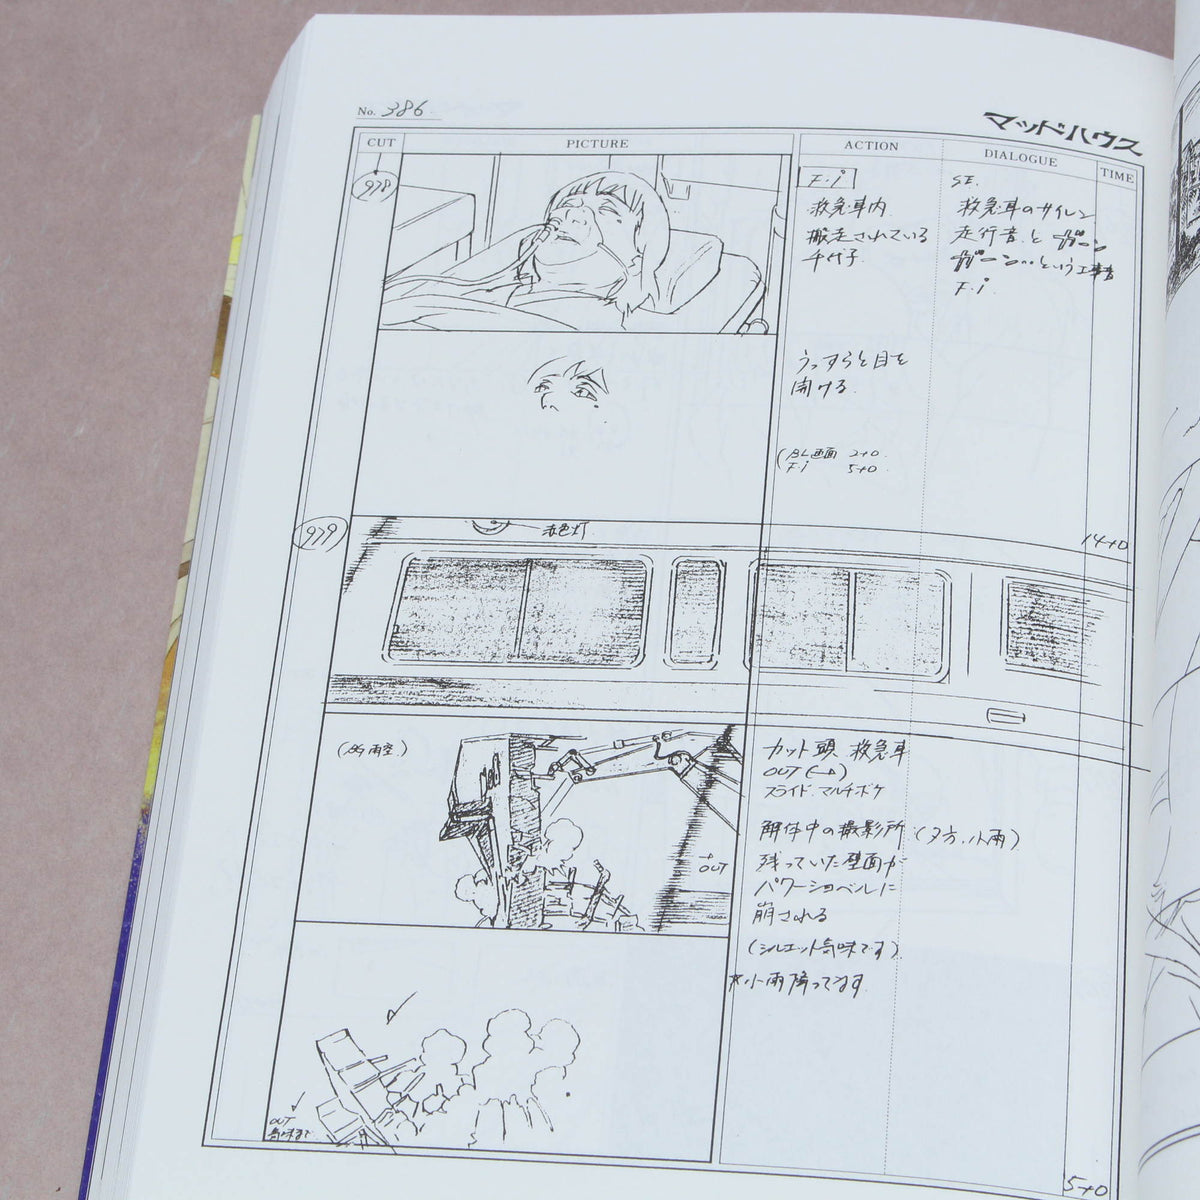 No. 386
マッドハウス
CUT
PICTURE
ACTION
DIALOGUE
TIME
978
F・i
救急車内
搬走されている
千代子
SE.
救急車のサイレン
走行音と ガーン
ガーン‥という工事音
F・i
うっすらと目を
開ける
(BL画面 2+0
F・i 5+0
14+0
979
赤色灯
(BG 雨空)
OUT
カット頭 救急車
OUT (→)
スライド、マルチボケ
解体中の撮影所 (夕方、小雨)
残っていた壁面が
パワーショベルに
崩される
(シルエット気味です)
*小雨降ってます
OUT
気味まで
5+0